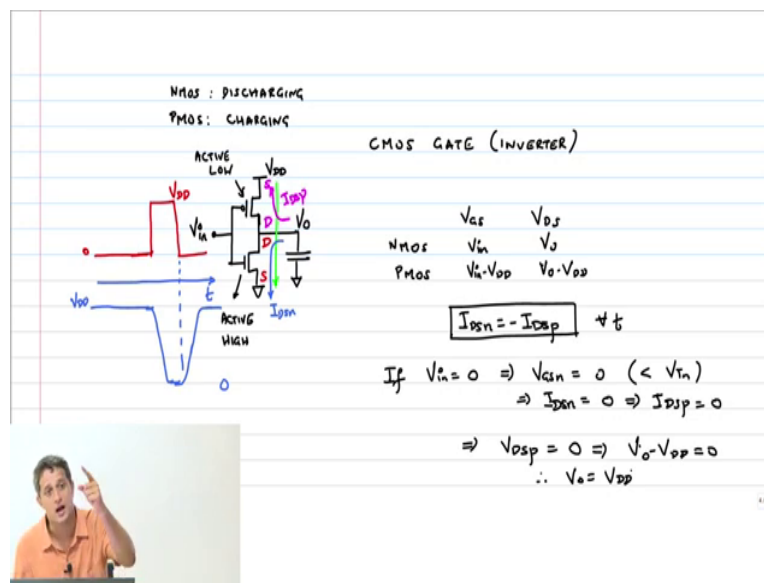 NMOS : DISCHARGING
PMOS : CHARGING
CMOS GATE (INVERTER)
ACTIVE LOW
VDD
S
IDSP
VDD
D
Vo
Vin
D
0
S
t
IDSn
VDD
ACTIVE HIGH
0
VGS VDS
NMOS Vin Vo
PMOS Vin-VDD Vo-VDD
IDSn = - IDSp ∀t
If Vin = 0 ⇒ VGSn = 0 (< VTn)
⇒ IDSn = 0 ⇒ IDSp = 0
⇒ VDSp = 0 ⇒ Vo-VDD = 0
∴ Vo = VDD